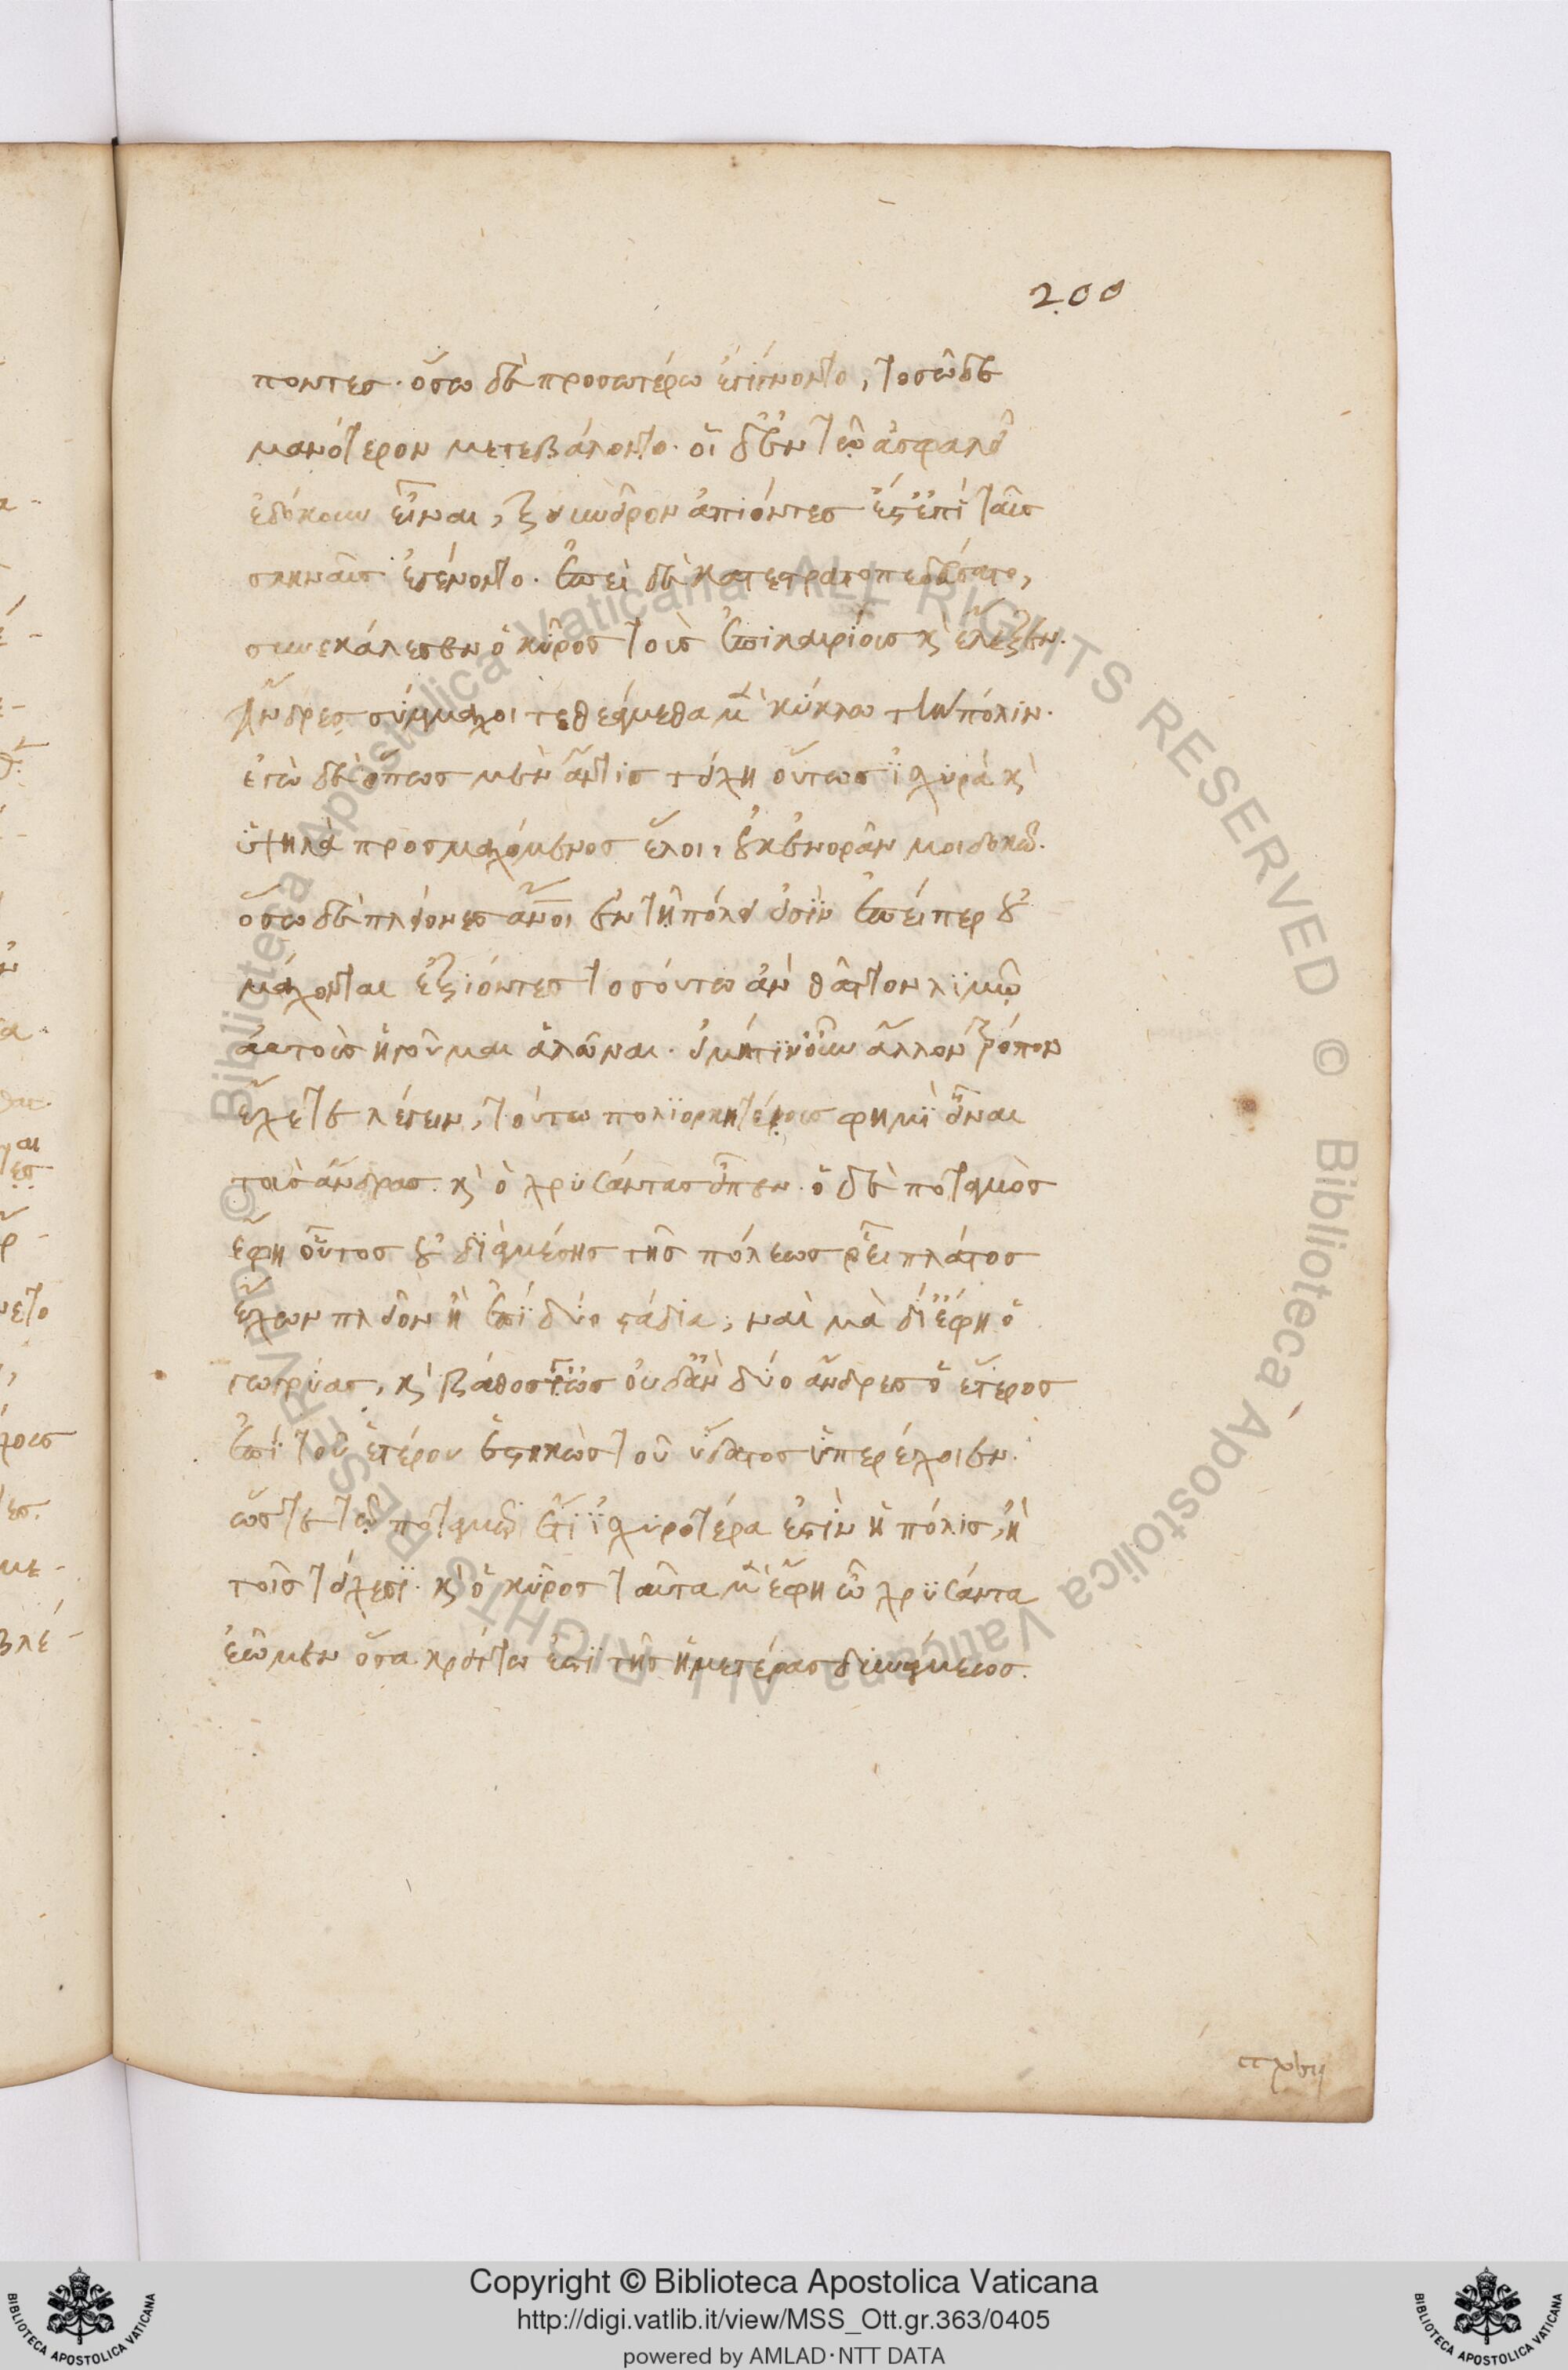 200
ποντες. ὅσω δὲ προσωτέρω ἐγίγνοντο, τοσῶδε
μανότερον μετεβάλοντο. οἱ δ' ἐν τῶ ἀσφαλεῖ
ἐδόκουν εἶναι, ξυνεῖρον ἀπιόντες ἔστ' ἐπὶ ταῖς
σκηναῖς ἐγένοντο. ἐπεὶ δὲ κατεστρατοπεδεύσατο,
συνεκάλεσεν ὁ κῦρος τοὺς ἐπικαιρίους κὶ ἔλεξεν.
Ἄνδρες σύμμαχοι τεθεάμεθα μὲν κύκλω τὴν πόλιν.
ἐγὼ δὲ ὅπως μὲν ἄν τις τείχη οὕτως ἰσχυρὰ κὶ
ὑψηλὰ προσμαχόμενος ἕλοι, οὐκ ἐνορᾶν μοι δοκῶ.
ὅσω δὲ πλείονες ἄνοι ἐν τῆ πόλει εἰσὶν ἐπείπερ οὐ
μάχονται ἐξιόντες τοσούτω ἂν θᾶττον λιμῶ
αὐτοὺς ἡγοῦμαι ἁλῶναι. εἰ μή τιν' οὖν ἄλλον τρόπον
ἔχετε λέγειν, τούτω πολιορκητέους φημὶ εἶναι
τοὺς ἄνδρας. κὶ ὁ χρυσάντας εἶπεν. ὁ δὲ ποταμὸς
ἔφη οὗτος οὐ διὰ μέσης τῆς πόλεως ῥεῖ πλάτος
ἔχων πλεῖον ἢ ἐπὶ δύο στάδια; ναὶ μὰ δί' ἔφη ὁ
γωβρύας, κὶ βάθος γ' ὡς οὐδ' ἂν δύο ἄνδρες ὁ ἕτερος
ἐπὶ τοῦ ἑτέρου ἑστηκὼς τοῦ ὕδατος ὑπερέχοιεν.
ὥστε τῶ ποταμῶ ἔτι ἰσχυροτέρα ἐστὶν ἡ πόλις, ἢ
τοῖς τείχεσι. κὶ ὁ κῦρος ταῦτα μὲν ἔφη ὦ χρυσάντα
ἐῶμεν ὅσα κρείττω ἐστὶ τῆς ἡμετέρας δυνάμεως.
Copyright © Biblioteca Apostolica Vaticana
http://digi.vatlib.it/view/MSS_Ott.gr.363/0405
powered by AMLAD·NTT DATA
© Biblioteca Apostolica Vaticana ALL RIGHTS RESERVED © Biblioteca Apostolica Vaticana ALL RIGHTS RESERVED
BIBLIOTECA APOSTOLICA VATICANA
BIBLIOTECA APOSTOLICA VATICANA